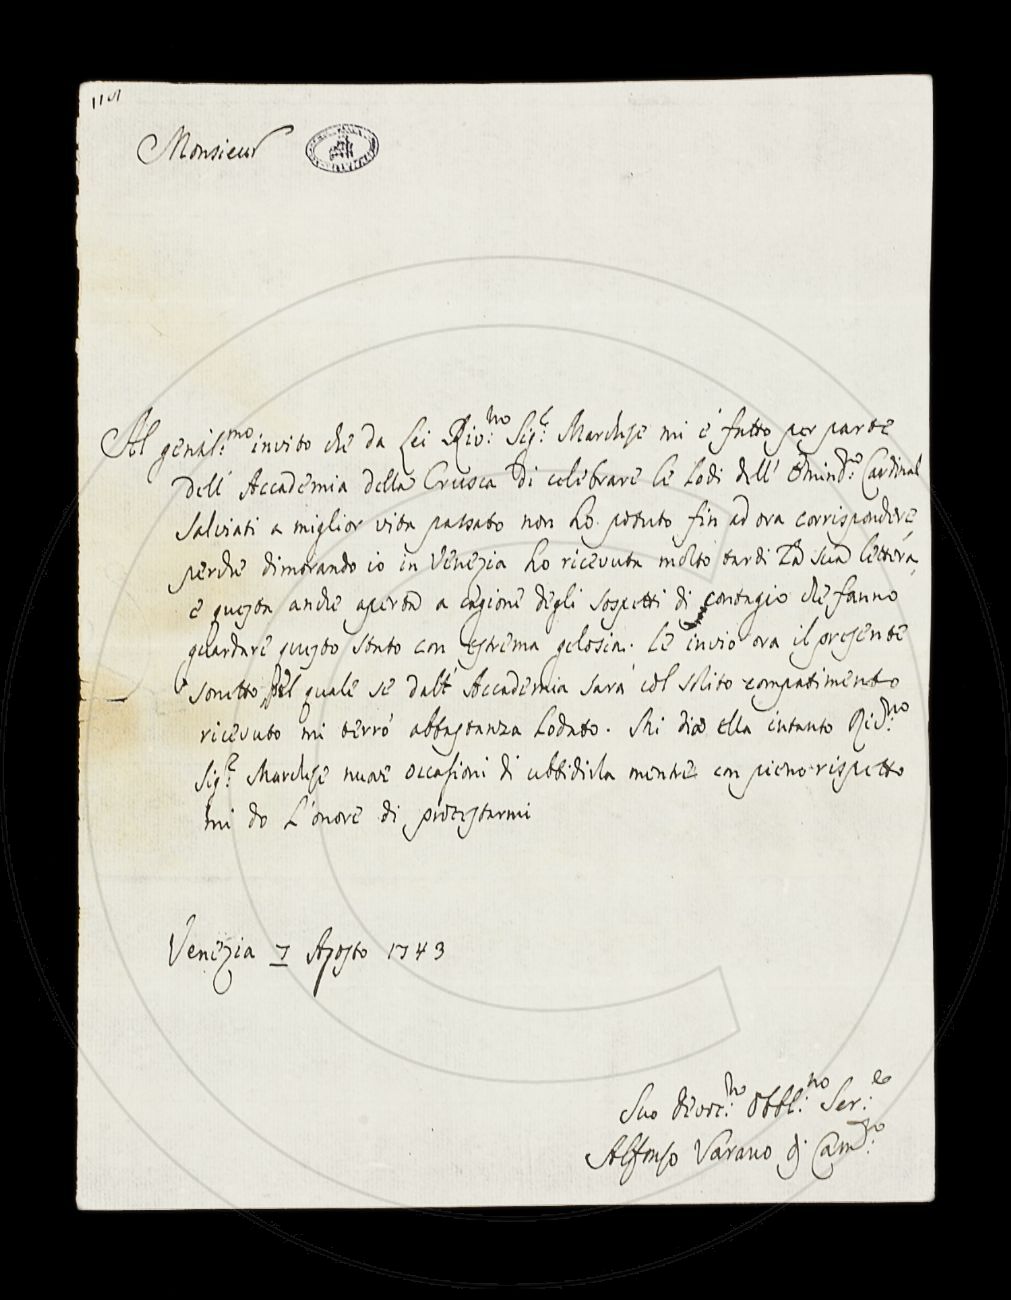 Monsieur
Al gentil.mo invito che da Lei Riv.mo Sig.e Marchese mi è fatto per parte
dell' Accademia della Crusca di celebrare le Lodi dell' Cardinal
Salviati a miglior vita passato non ho potuto fin ad ora corrispondere
perche dimorando io in Venezia ho ricevuta molto tardi la sua lettera,
e questa anche aperta a cagione degli sospetti di contagio che fanno
guardare questo stato con estrema gelosia. Le invio ora il presente
sonetto del quale se dall' Accademia sarà col solito compatimento
ricevuto mi terrò abbastanza lodato. Mi dia ella intanto
Sig.e Marchese nuove occasioni di ubbidirla mentre con pieno rispetto
mi do l'onore di protestarmi
Venezia 7 Agosto 1743
Suo divot.mo Obbl.mo Ser.e
Alfonso Varano di Cam.no